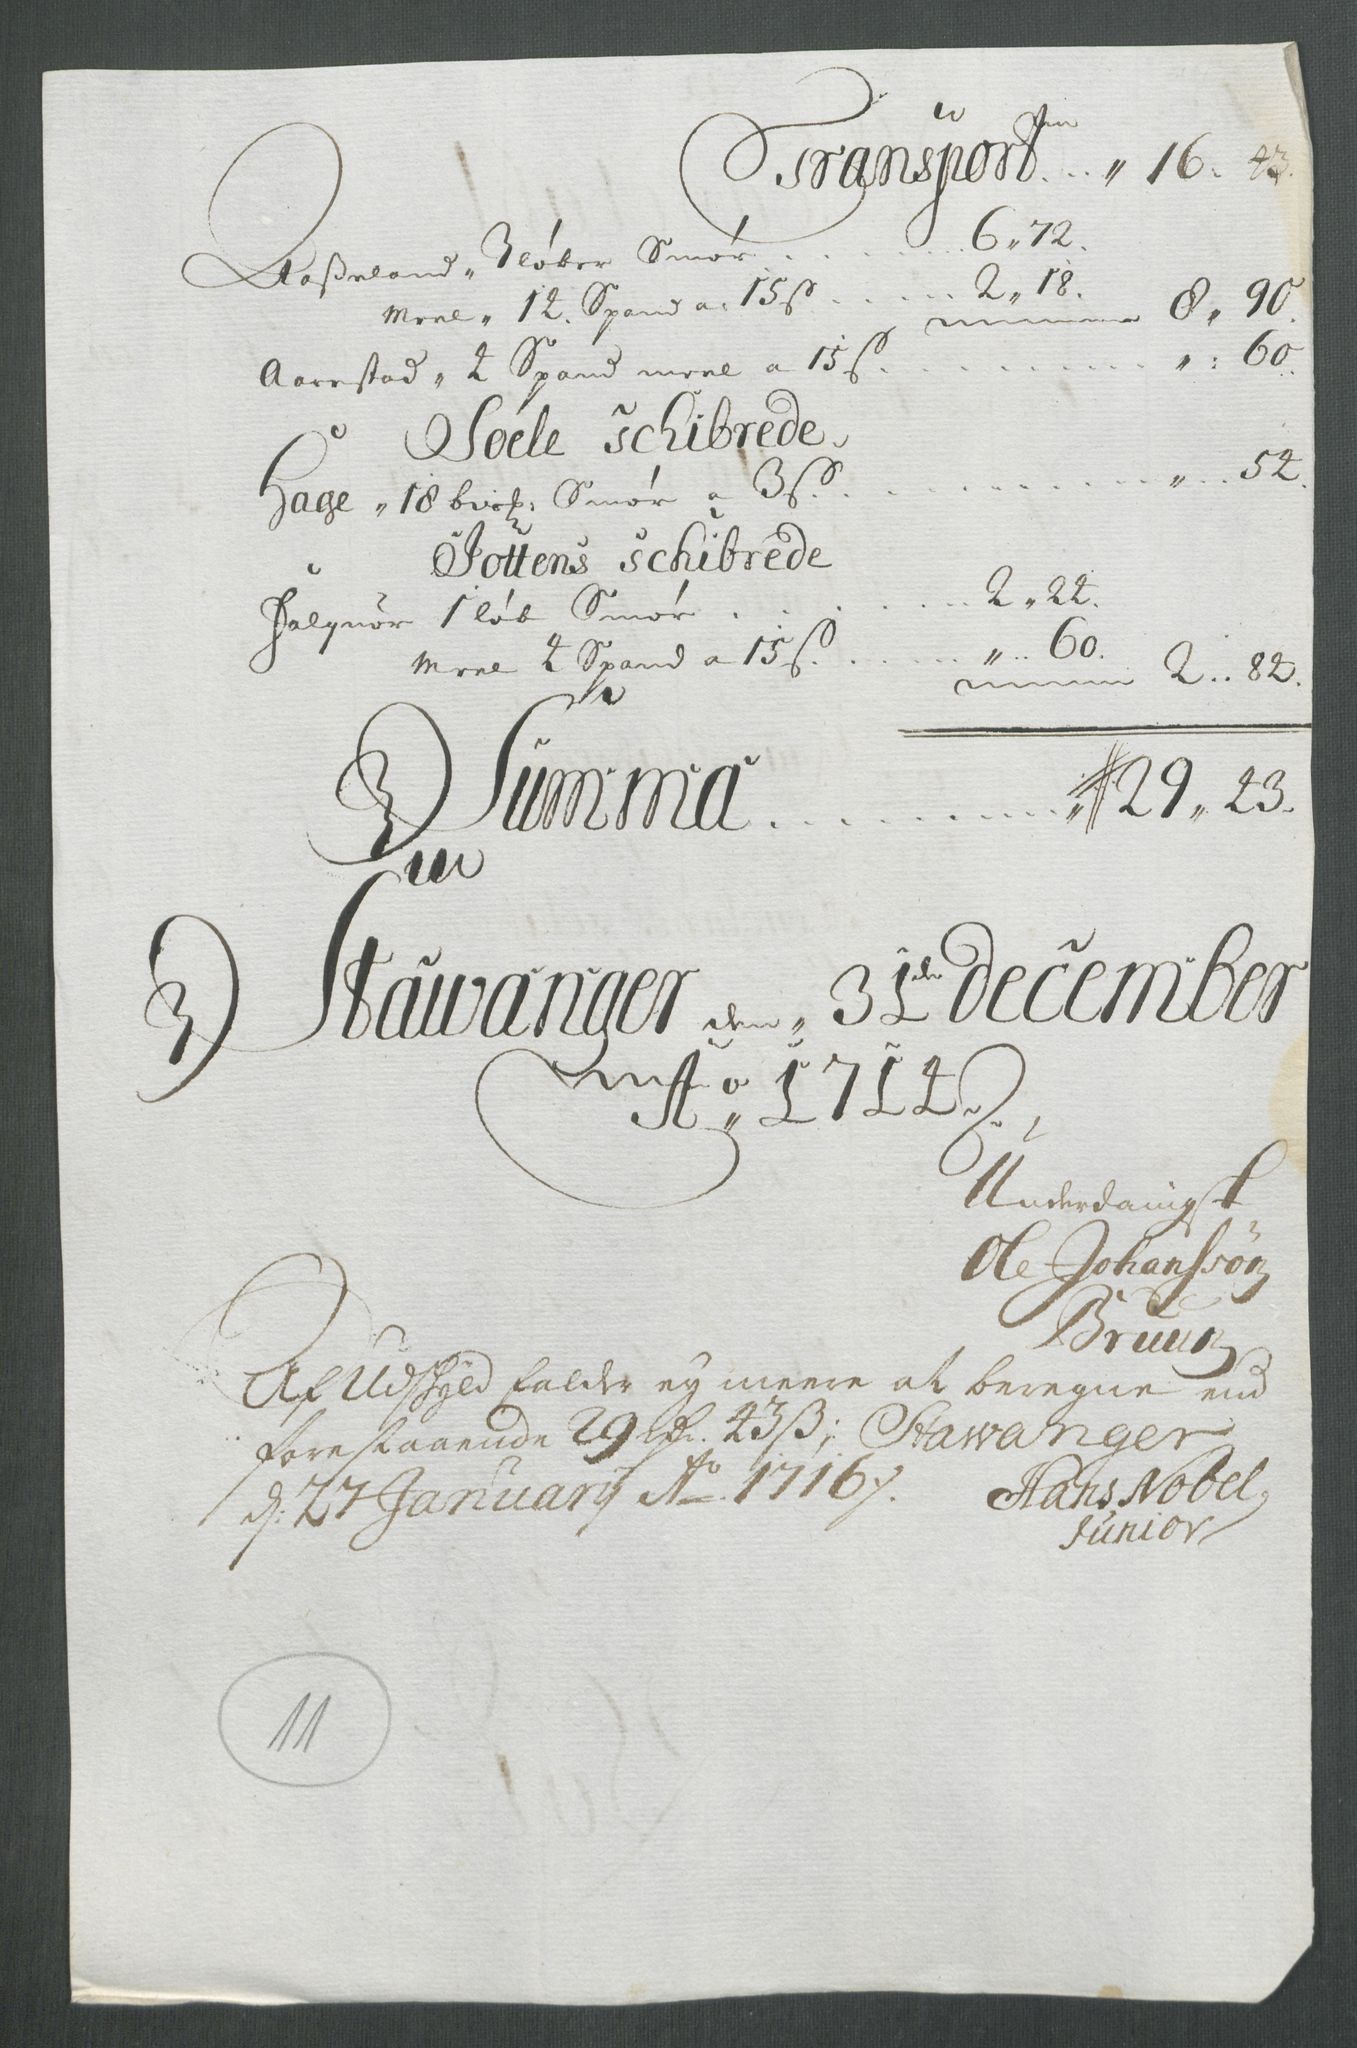 Transport... " 16. 43.
Aaßeland " 3 løber Smør ........ 6 " 72.
Meel " 14. Spand a: 15 ß ..... 2 " 18. 8 " 90.
Aarestad " 4 Spand meel a 15 ß. ......... " : 60.
Soele Schibrede
Hage " 18 bispd: Smør a 3 ß. ........... " .. 54.
Jottens Schibrede
Falgnør 1 løb Smør ........ 2 " 24.
Meel 4 Spand a 15 ß. ...... " .. 60. 2 .. 84.
Summa .......... 29 " 43.
Stawanger den " 31de december
Ao 1714
Underdanigst
Ole Johanssøn
Bruun
Af Udschyld falder ey meere at beregne end
forestaaende 29 rdr. 43 ß; Stawanger
d: 27 January Ao. 1716.
Hans Nobel
Junior
11